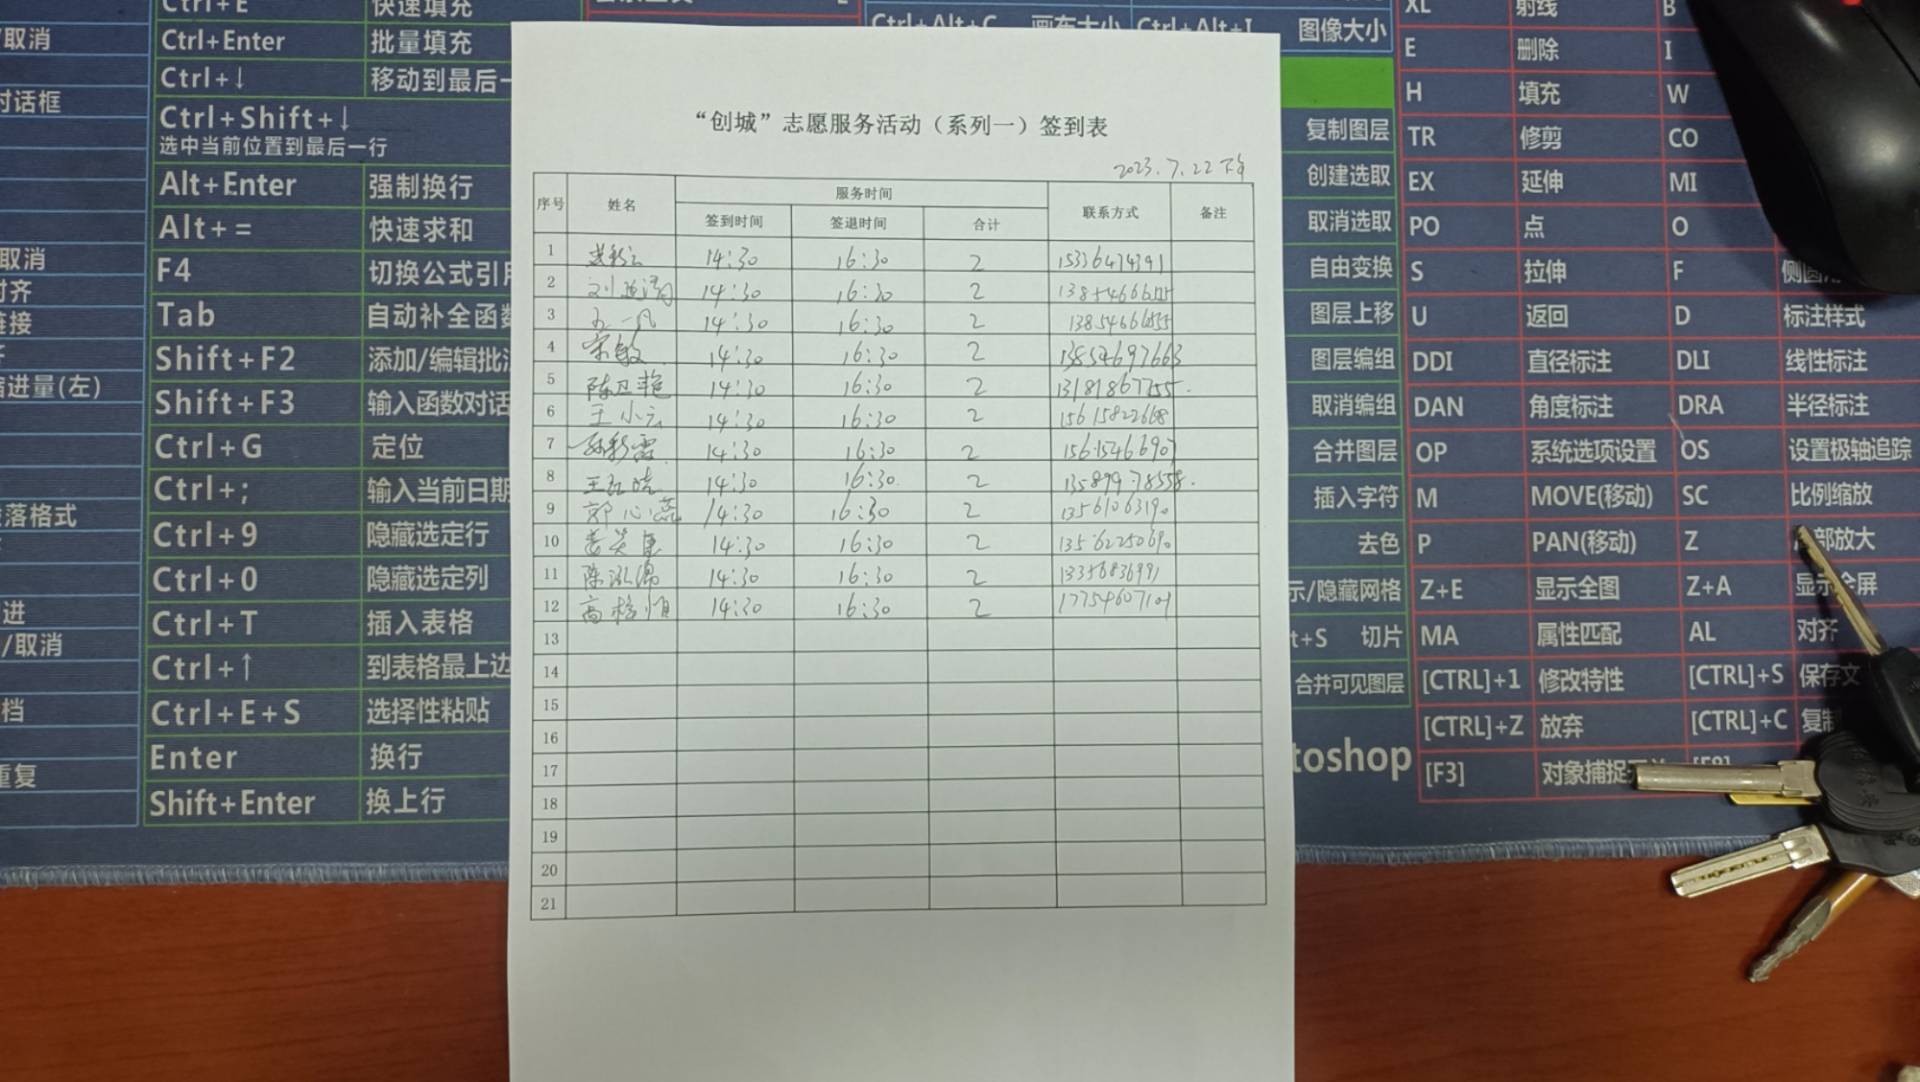 Ctrl+E 快速填充
Ctrl+Enter 批量填充
Ctrl+↓ 移动到最后一
Ctrl+Shift+↓
选中当前位置到最后一行
Alt+Enter 强制换行
Alt+= 快速求和
F4 切换公式引用
Tab 自动补全函数
Shift+F2 添加/编辑批注
Shift+F3 输入函数对话
Ctrl+G 定位
Ctrl+; 输入当前日期
Ctrl+9 隐藏选定行
Ctrl+0 隐藏选定列
Ctrl+T 插入表格
Ctrl+↑ 到表格最上边
Ctrl+E+S 选择性粘贴
Enter 换行
Shift+Enter 换上行
/取消
对话框
取消
对齐
链接
缩进量(左)
段落格式
进
/取消
档
重复
“创城”志愿服务活动（系列一）签到表
2023.7.22 下午
序号 姓名 服务时间 联系方式 备注
签到时间 签退时间 合计
1 14:30 16:30 2
2 14:30 16:30 2
3 14:30 16:30 2
4 宋敏 14:30 16:30 2 13854697663
5 陈卫艳 14:30 16:30 2 13181867755
6 王小云 14:30 16:30 2 15615822668
7 14:30 16:30 2 15615466907
8 14:30 16:30 2 13589978558
9 郭心蕊 14:30 16:30 2 13561063190
10 14:30 16:30 2 13562250690
11 14:30 16:30 2
12 14:30 16:30 2 17754607101
13
14
15
16
17
18
19
20
21
Ctrl+Alt+C 画布大小 Ctrl+Alt+I 图像大小
复制图层
创建选取
取消选取
自由变换
图层上移
图层编组
取消编组
合并图层
插入字符
去色
示/隐藏网格
t+S 切片
合并可见图层
toshop
XL 射线 B
E 删除 I
H 填充 W
TR 修剪 CO
EX 延伸 MI
PO 点 O
S 拉伸 F
U 返回 D 标注样式
DDI 直径标注 DLI 线性标注
DAN 角度标注 DRA 半径标注
OP 系统选项设置 OS 设置极轴追踪
M MOVE(移动) SC 比例缩放
P PAN(移动) Z 部放大
Z+E 显示全图 Z+A 显示全屏
MA 属性匹配 AL 对齐
[CTRL]+1 修改特性 [CTRL]+S 保存文
[CTRL]+Z 放弃 [CTRL]+C 复制
[F3] 对象捕捉